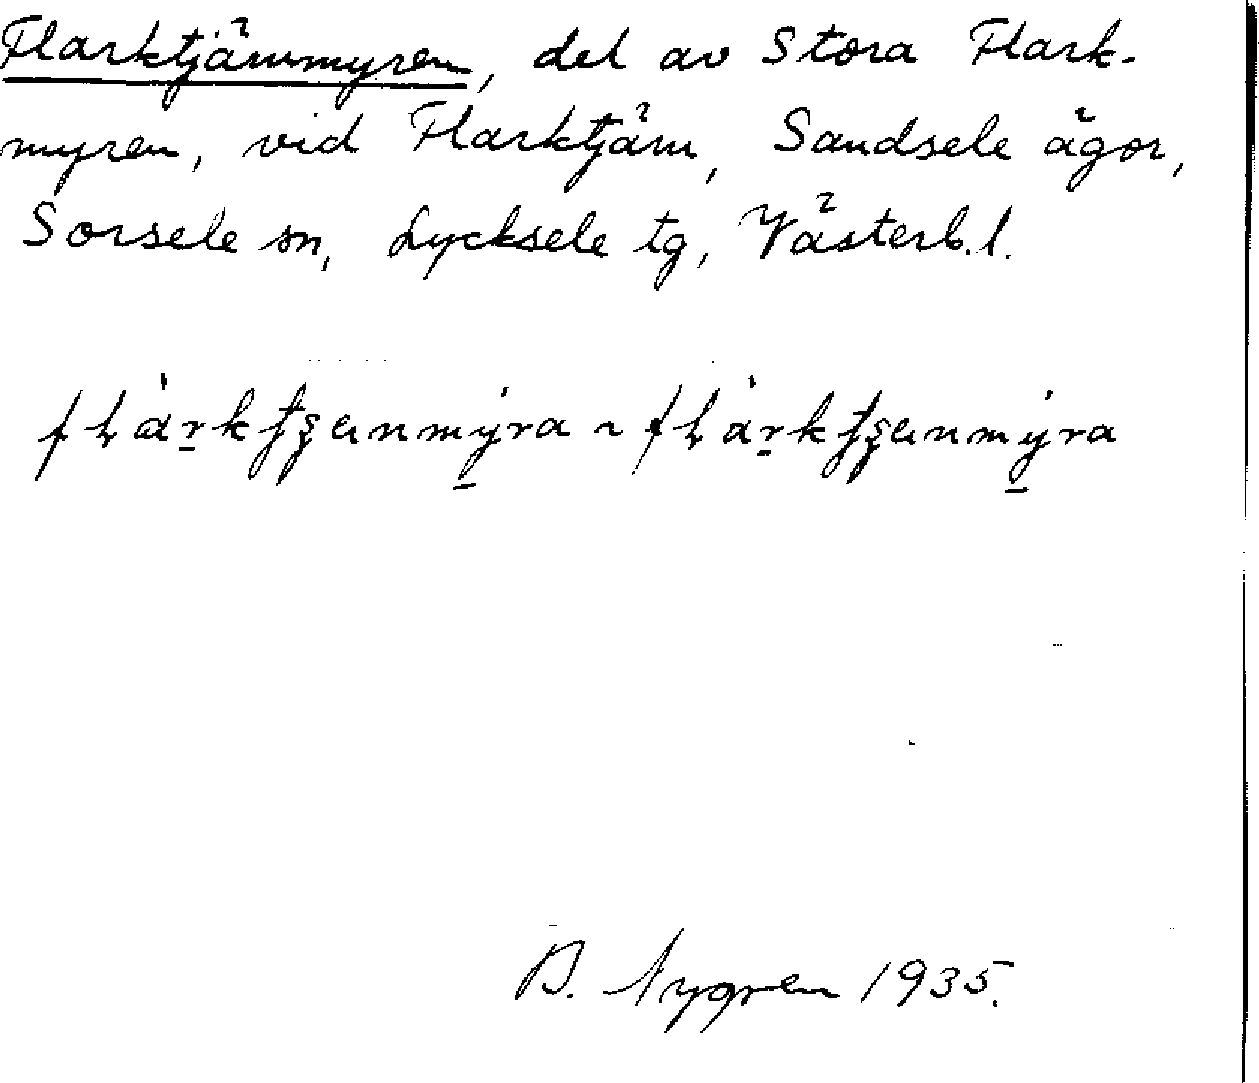 Flarktjärnmyren, del av Stora Flark-
myren, vid Flarktjärn, Sandsele ägor,
Sorsele sn, Lycksele tg, Västerb. l.
B. Nygren 1935.